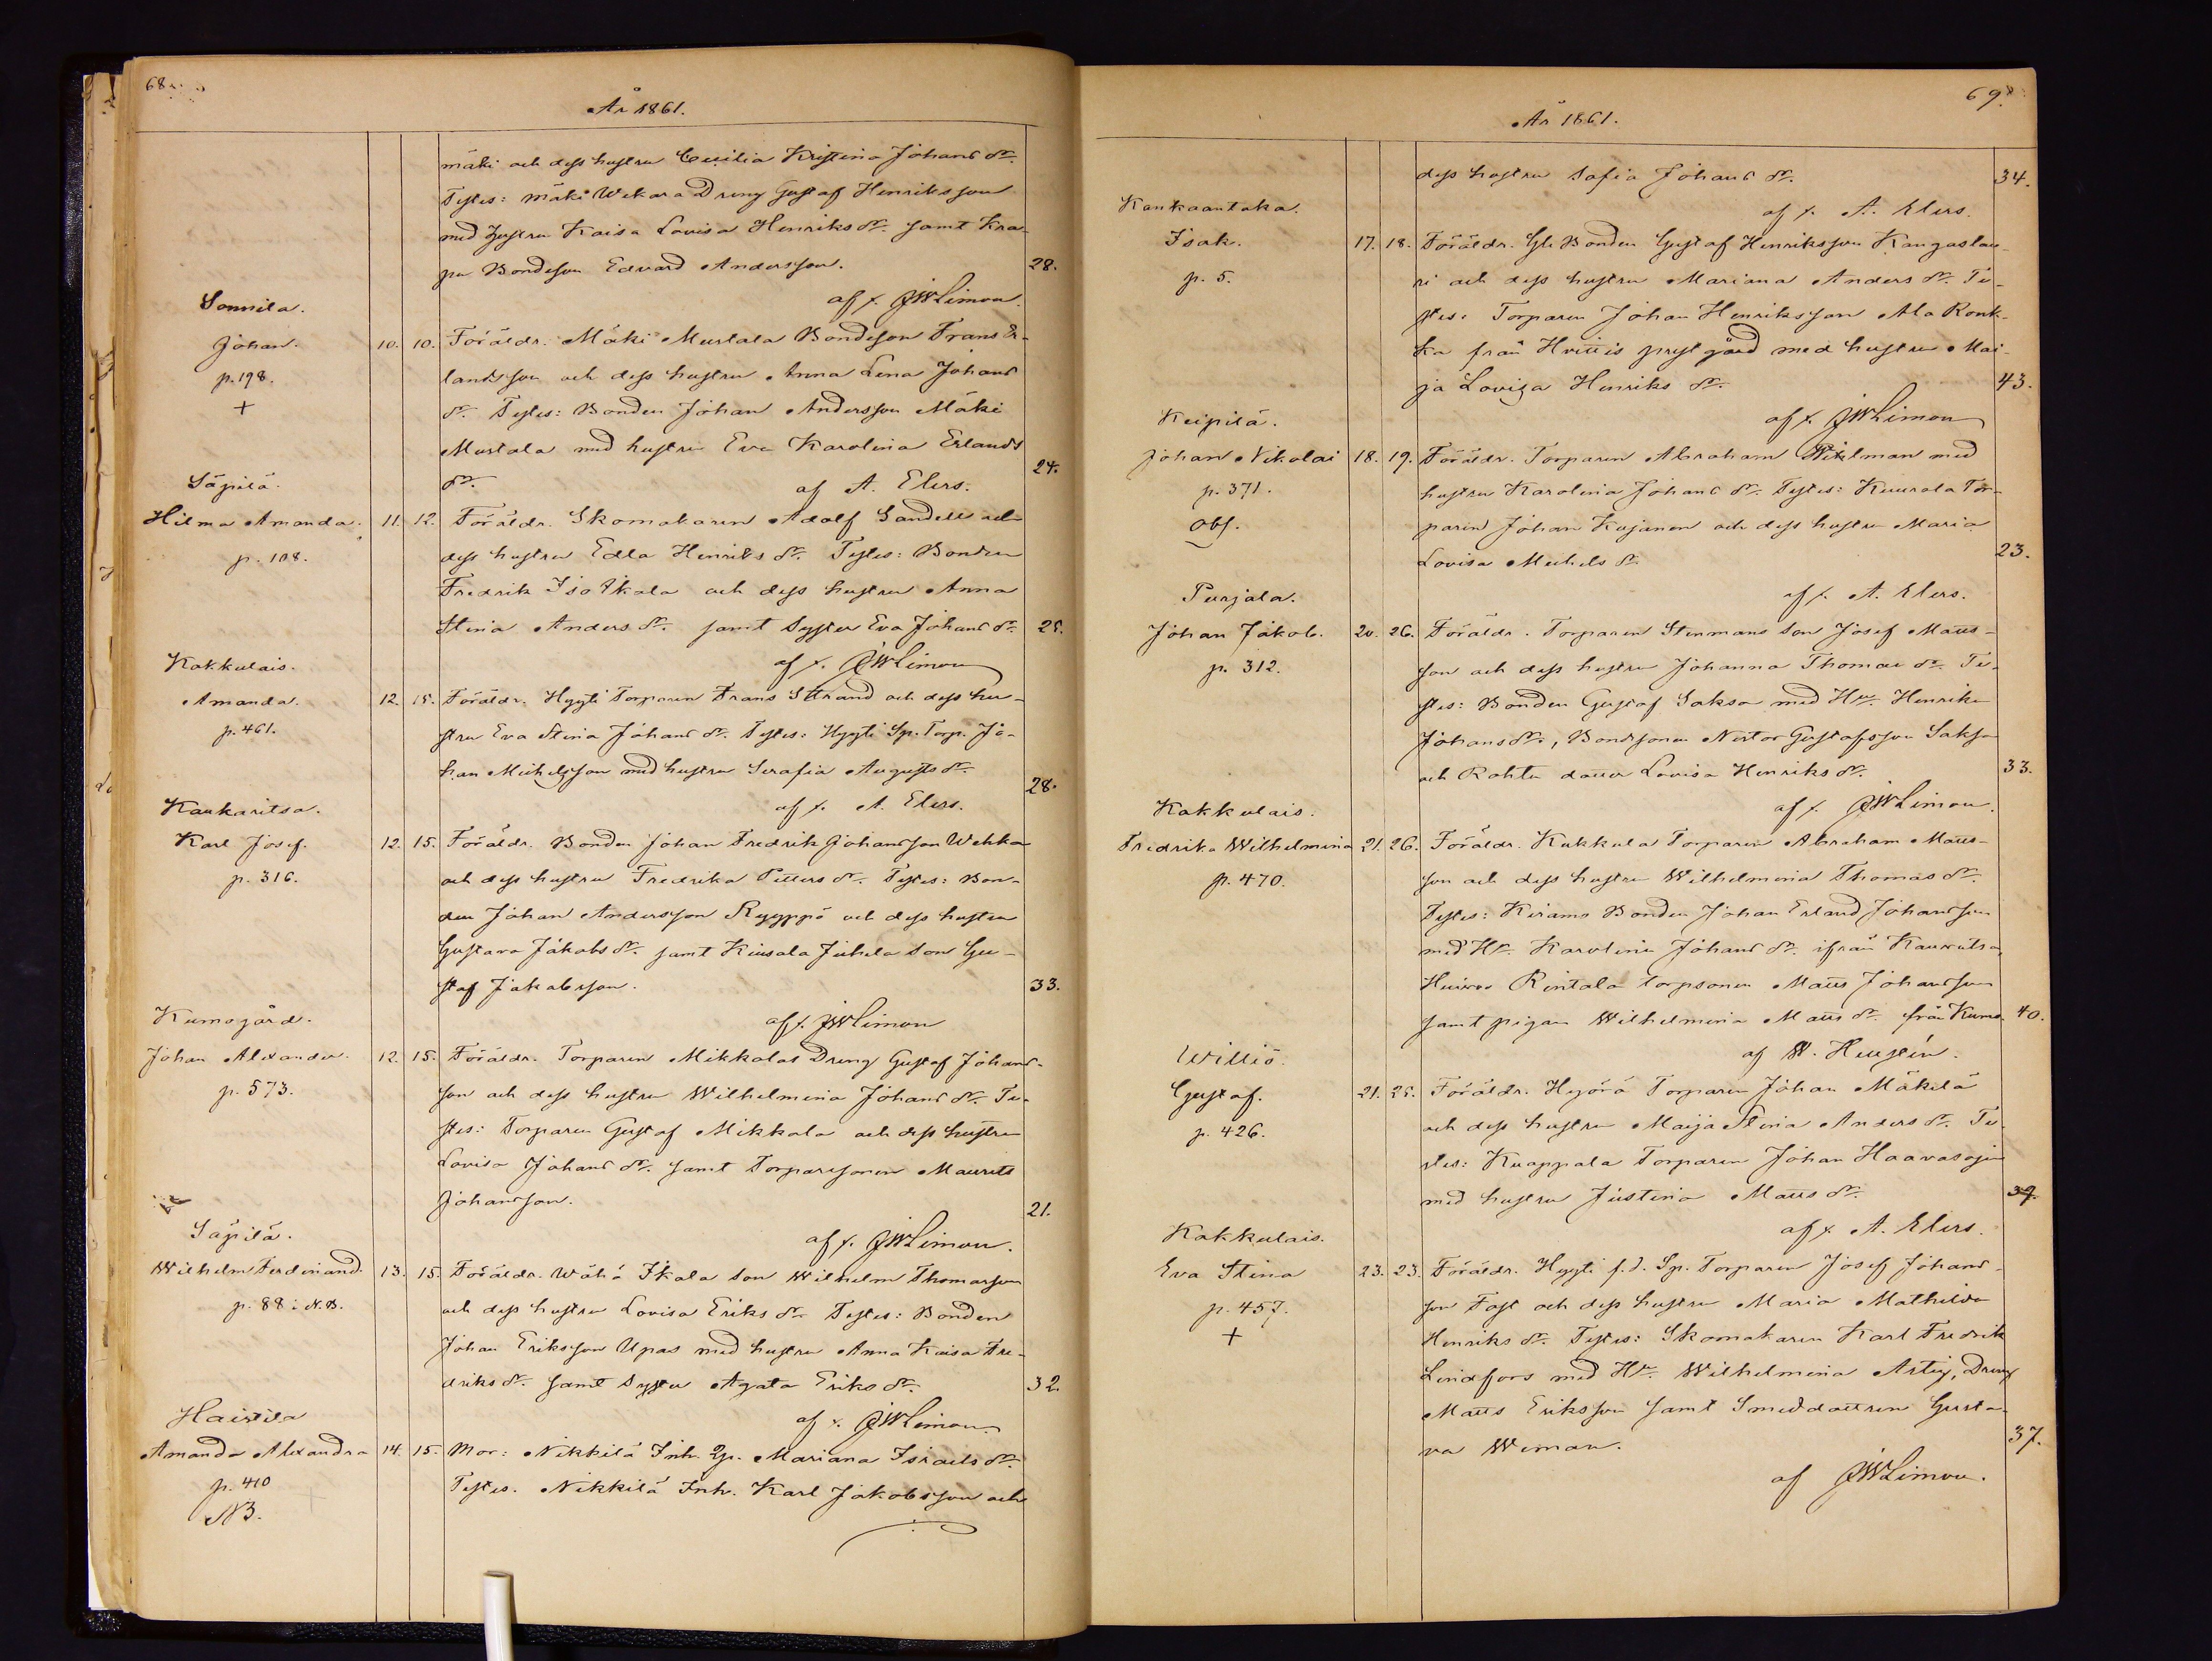 68.
År 1861.
mäki och dess hustru Cecilia Kristina Johans dr.
Testes: mäki Wekara Dreng Gustaf Henriksson
med hustru Kaisa Lovisa Henriks dr. samt Kra-
pu Bondeson Edvard Andersson. 28.
af v. JWLimon.
Sonnila.
Johan. 10. 10. Föräldr. Mäki Mustala Bondeson Frans Er-
p. 198. landsson och dess hustru Anna Lena Johans
+ dr. Testes: Bonden Johan Andersson Mäki
Mustala med hustru Eva Karolina Erlands
dr. af A. Elers. 24.
Säpilä.
Hilma Amanda. 11. 12. Föräldr. Skomakaren Adolf Sandell och
p. 108. dess hustru Edla Henriks dr. Testes: Bonden
Fredrik Iso Ikala och dess hustru Anna
Stina Anders dr. samt Syster Eva Johans dr. 25.
Kakkulais. af v. JWLimon
Amanda. 12. 15. Föräldr. Hyyti Torparen Frans Strand och dess hu-
p. 461. stru Eva Stina Johans dr. Testes: Hyyti Sp. Torp. Jo-
han Michelsson med hustru Serafia Augusts dr. 28.
Kaukaritsa. af v. A. Elers.
Karl Josef. 12. 15. Föräldr. Bonden Johan Fredrik Johansson Wehka
p. 316. och dess hustru Fredrika Petters dr. Testes: Bon-
den Johan Andersson Ryyppö och dess hustru
Gustava Jakobs dr. samt Kiusala Juhela Son Gu-
staf Jakobsson. 33.
Kumogård. af v. JWLimon
Johan Alexander. 12. 15. Föräldr. Torparen Mikkolas Dreng Gustaf Johans-
p. 573. son och dess hustru Wilhelmina Johans dr. Te-
stes: Torparen Gustaf Mikkola och dess hustru
Lovisa Johans dr. samt Torparesonen Maurits
Johansson. 21.
Säpilä. af v. JWLimon.
Wilhelm Ferdinand. 13. 15. Föräldr. Wähä Ikala Son Wilhelm Thomasson
p. 88: N.B. och dess hustru Lovisa Eriks dr. Testes: Bonden
Johan Eriksson Upas med hustru Anna Kaisa Fre-
driks dr. samt Syster Agata Eriks dr. 32.
Haistila af v. JWLimon.
Amanda Alexandra 14. 15. Mor: Nikkilä Inh. Qp. Mariana Israels dr.
p. 410 Testes. Nikkilä Inh. Karl Jakobsson och
NB.
69.
År 1861.
dess hustru Sofia Johans dr. 34.
Kankaantaka. af v. A. Elers.
Isak. 17. 18. Föräldr. Gle Bonden Gustaf Henriksson Kangaslau-
p. 5. ri och dess hustru Mariana Anders dr. Te-
stes: Torparen Johan Henriksson Ala Ronk-
ka från Hvittis prestgård med hustru Mai-
ja Loviza Henriks dr. 43.
Keipilä. af v. JWLimon
Johan Nikolai 18. 19. Föräldr. Torparen Abraham Wikman med
p. 371. hustru Karolina Johans dr. Testes: Kuurola Tor-
Obs. paren Johan Kujanen och dess hustru Maria
Lovisa Michels dr. 23.
Purjala. af v. A. Elers.
Johan Jakob. 20. 26. Föräldr. Torparen Stenmans Son Josef Matts-
p. 312. son och dess hustru Johanna Thomae dr. Te-
stes: Bonden Gustaf Saksa med Hu. Henrika
Johans dr., Bondsonen Nestor Gustafsson Saksa
och Rohtu dotter Lovisa Henriks dr. 33.
Kakkulais. af v. JWLimon.
Fredrika Wilhelmina 21. 26. Föräldr. Kukkula Torparen Abraham Matts-
p. 470. son och dess hustru Wilhelmina Thomas dr.
Testes: Kirams Bonden Johan Erland Johansson
med Hu. Karolina Johans dr. ifrån
Rintala torpsonen Matts Johansson
samt pigan Wilhelmina Matts dr. från Kumo. 40.
Williö. af
Gustaf. 21. 25. Föräldr. Hyörä Torparen Johan Mäkilä
p. 426. och dess hustru Maija Stina Anders dr. Te-
stes: Kuappala Torparen Johan Haavasoja
med hustru Justina Matts dr.
Kakkulais. af v. A. Elers.
Eva Stina 23. 23. Föräldr. Hyyti f.d. Sp. Torparen Josef Johans-
p. 457. son Fast och dess hustru Maria Mathilda
+ Henriks dr. Testes: Skomakaren Karl Fredrik
Lindfors med Hu. Wilhelmina Artig, Dreng
Matts Eriksson samt Smeddottren Gusta-
va Wiman. 37.
af JWLimon.